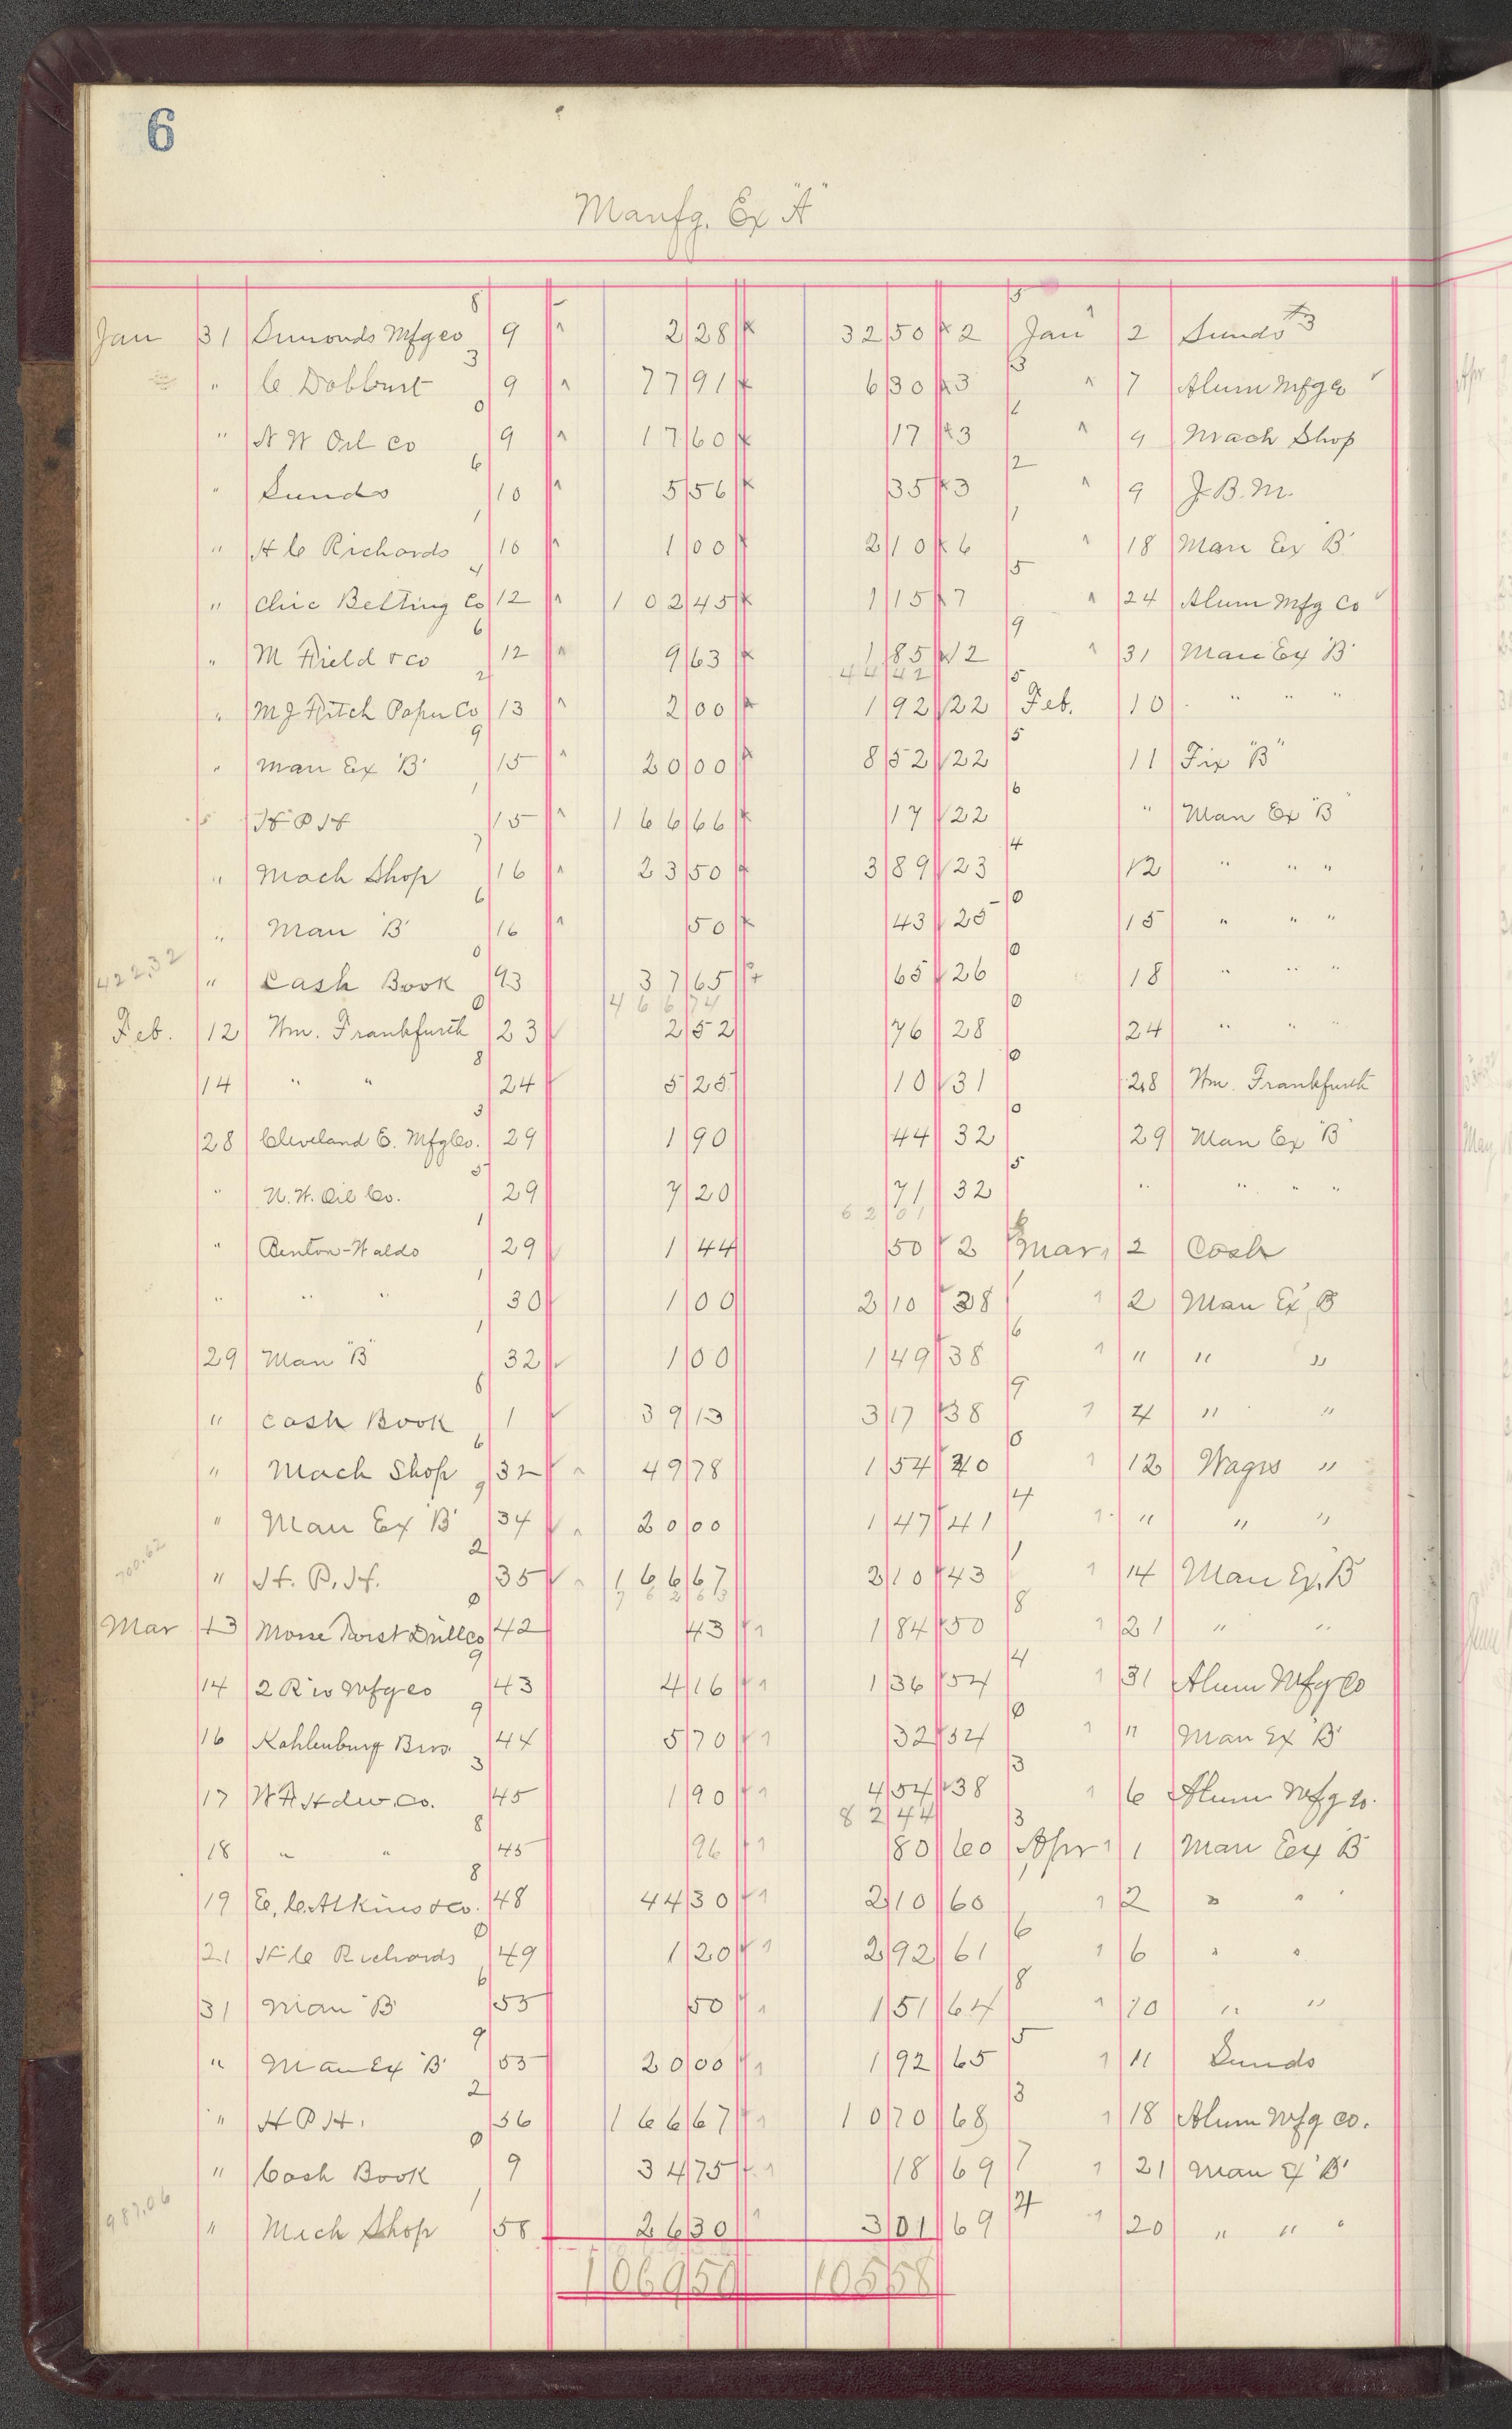 6
Manfg. Ex "A"
Jan 31 Simonds Mfg co 8 9 2 28 32 50 2 5 Jan 2 Sunds #3
" C Dobbert 3 9 77 91 6 30 3 3 7 Alum Mfg Co
" N W Oil Co 0 9 17 60 17 3 9 Mach Shop
" Sunds 6 10 5 56 35 3 2 9 J. B. M.
" H C Richards 1 10 1 00 2 10 6 1 18 Man Ex 'B'
" Chic Belting Co 4 12 102 45 1 15 7 5 24 Alum Mfg Co
" M Field & co 6 12 9 63 1 85 12 9 31 Man Ex 'B'
44 42
" M J Fitch Paper Co 2 13 2 00 1 92 22 5 Feb. 10 " " "
" Man Ex 'B' 9 15 20 00 8 52 22 5 11 Fix "B"
" H P H 1 15 166 66 17 22 6 " Man Ex "B"
" Mach Shop 7 16 23 50 3 89 23 4 12 " " "
" Man 'B' 6 16 50 43 25 0 15 " " "
422.32 " Cash Book 0 93 37 65 65 26 0 18 " " "
466 74
Feb. 12 Wm. Frankfurth 0 23 2 52 76 28 0 24 " " "
14 " " 8 24 5 25 10 31 0 28 Wm. Frankfurth
28 Cleveland C. Mfg Co. 3 29 1 90 44 32 0 29 Man Ex "B"
" N. W. Oil Co. 5 29 7 20 71 32 5 " " " "
62 01
" Benton-Waldo 1 29 1 44 50 2 Mar 2 Cash
" " " 1 30 1 00 2 10 38 1 2 Man Ex B
29 Man "B" 1 32 1 00 1 49 38 6 " " "
" Cash Book 6 1 39 13 3 17 38 9 4 " "
" Mach Shop 6 32 49 78 1 54 40 0 12 Wages "
" Man Ex 'B' 9 34 20 00 1 47 41 4 " " "
700.62 " H. P. H. 2 35 166 67 2 10 43 1 14 Man Ex. B
762 63
Mar 13 Morse Twist Drill co 0 42 43 1 84 50 8 21 " "
14 2 Riv Mfg co 9 43 4 16 1 36 54 4 31 Alum Mfg Co
16 Kahlenburg Bros. 9 44 5 70 32 54 0 " Man Ex 'B'
17 W H Hdw. Co. 3 45 1 90 4 54 38 3 6 Alum Mfg Co.
82 44
18 " " 8 45 96 80 60 3 Apr 1 Man Ex 'B'
19 E. C. Atkins & Co. 8 48 44 30 2 10 60 1 2 " " "
21 H C Richards 0 49 1 20 2 92 61 6 6 " "
31 Man 'B' 6 55 50 1 51 64 8 10 " "
" Man Ex 'B' 9 55 20 00 1 92 65 5 11 Sunds
" H P H. 2 56 166 67 10 70 68 3 18 Alum Mfg Co.
" Cash Book 0 9 34 75 18 69 7 21 Man Ex 'B'
987.06 " Mich Shop 1 58 26 30 3 01 69 4 20 " " "
1069 50 105 58